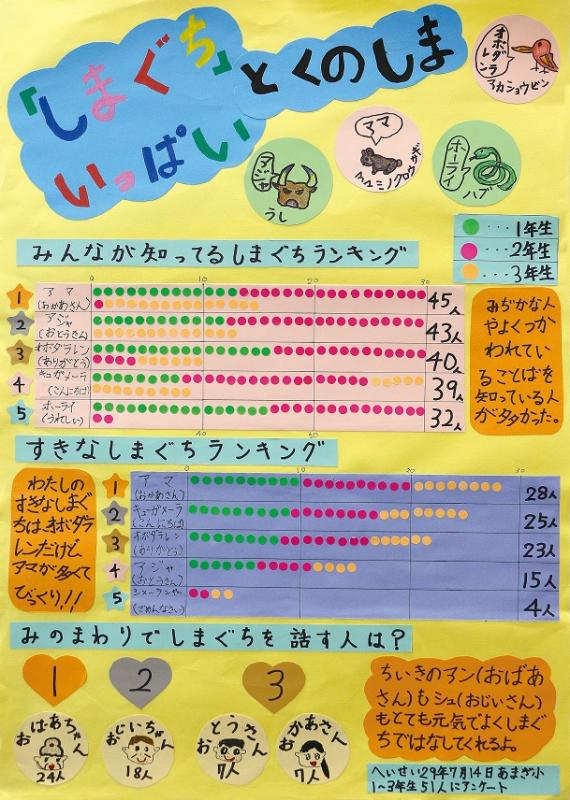 「しまぐち」
いっぱい
とくのしま
オボダレン
アカショウビン
アマ
アマミノクロウサギ
アジャ
うし
ホーライ
ハブ
･･･1年生
･･･2年生
･･･3年生
みんなが知ってるしまぐちランキング
0 10 20 30
1 アマ
(おかあさん)
45人
2 アジャ
(おとうさん)
43人
3 オボダラレン
(ありがとう)
40人
4 キュガメーラ
(こんにちは)
39人
5 ホーライ
(うれしい)
32人
40 50
みぢかな人
やよくつか
われてい
ることばを
知っている人
が多かった。
すきなしまぐちランキング
0 10 20 30
1 アマ
(おかあさん)
28人
2 キューガメーラ
(こんにちは)
25人
3 オボダラレン
(ありがとう)
23人
4 アジャ
(おとうさん)
15人
5
(ごめんなさい)
4人
わたしの
すきなしまぐ
ちはオボダラ
レンだけど、
アマが多くて
びっくり!!
みのまわりでしまぐちを話す人は?
1
2
3
おばあちゃん
24人
おじいちゃん
18人
おとうさん
7人
おかあさん
7人
ちいきのアン(おばあ
さん)もシュ(おじいさん)
もとても元気でよくしまぐ
ちではなしてくれるよ。
へいせい29年7月14日あまぎ小
1~3年生51人にアンケート